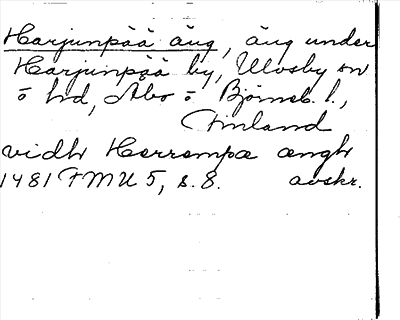 Harjunpää äng, äng under
Harjunpää by, Ulvsby sn
o hd, Åbo o Björneb. l.,
Finland
vidh Herrempæ ængh
1481 FMU 5, s. 8. avskr.